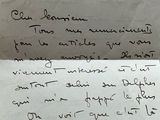 Cher Monsieur
Tous mes remerciements
par les articles que vous
m'avez envoyés. Ils m'ont
vivement intéressé et c'est
surtout celui sur Delphes
qui m'a frappé le plus
On voit que c'est là